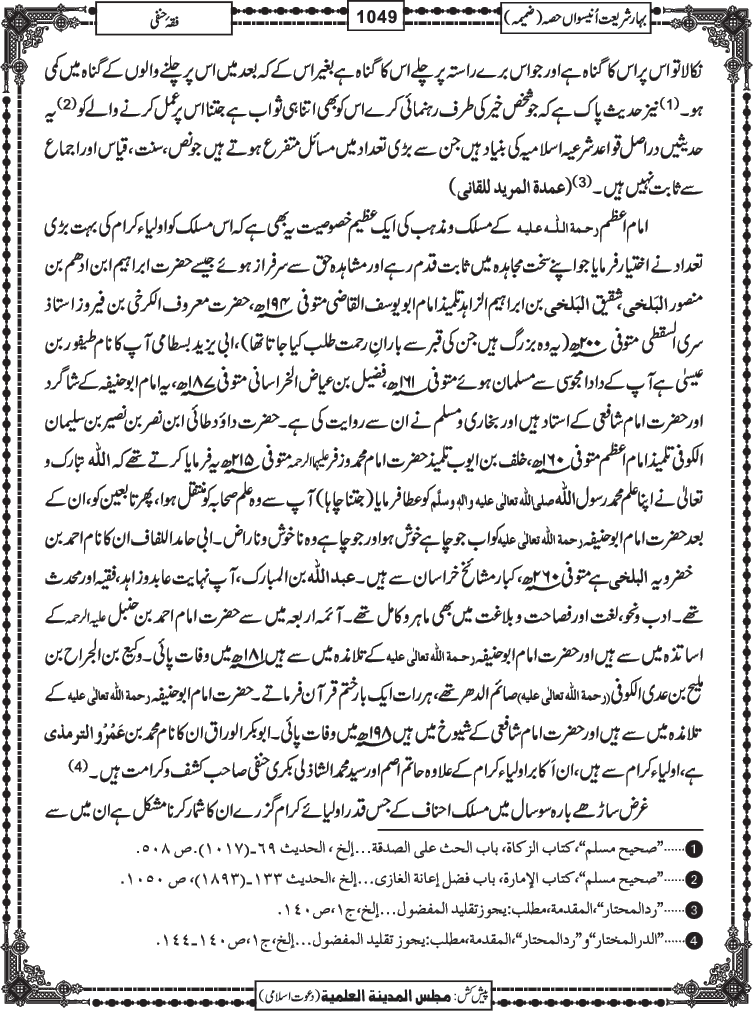 بہارِ شریعت اُنیسواں حصہ (ضمیمہ)
1049
فقۂ حنفی
نکالا تو اس پر اس کا گناہ ہے اور جو اس برے راستہ پر چلے اس کا گناہ ہے بغیر اس کے کہ بعد میں اس پر چلنے والوں کے گناہ میں کمی
ہو۔(1) نیز حدیث پاک ہے کہ جو شخص خیر کی طرف رہنمائی کرے اس کو بھی اتنا ہی ثواب ہے جتنا اس پر عمل کرنے والے کو(2) یہ
حدیثیں دراصل قواعد شرعیہ اسلامیہ کی بنیاد ہیں جن سے بڑی تعداد میں مسائل متفرع ہوتے ہیں جو نص، سنت، قیاس اور اجماع
سے ثابت نہیں ہیں۔(3) (عمدة المريد للقانی)
امام اعظم رحمة الله عليه کے مسلک و مذہب کی ایک عظیم خصوصیت یہ بھی ہے کہ اس مسلک کو اولیاء کرام کی بہت بڑی
تعداد نے اختیار فرمایا جو اپنے سخت مجاہدہ میں ثابت قدم رہے اور مشاہدہ حق سے سرفراز ہوئے جیسے حضرت ابراہیم ابن ادھم بن
منصور البَلخی، شقیق البَلخی بن ابراہیم الزاہد تلمیذ امام ابو یوسف القاضی متوفی ۱۹۴ھ، حضرت معروف الکرخی بن فیروز استاذ
سری السقطی متوفی ۲۰۰ھ (یہ وہ بزرگ ہیں جن کی قبر سے بارانِ رحمت طلب کیا جاتا تھا)، ابی یزید بسطامی آپ کا نام طیفور بن
عیسیٰ ہے آپ کے دادا مجوسی سے مسلمان ہوئے متوفی ۱۶۱ھ، فضیل بن عیاض الخراسانی متوفی ۱۸۷ھ، یہ امام ابوحنیفہ کے شاگرد
اور حضرت امام شافعی کے استاد ہیں اور بخاری و مسلم نے ان سے روایت کی ہے۔ حضرت داؤد طائی ابن نصر بن نصیر بن سلیمان
الکوفی تلمیذ امام اعظم متوفی ۱۶۰ھ، خلف بن ایوب تلمیذ حضرت امام محمد و زفر علیہما الرحمۃ متوفی ۲۱۵ھ یہ فرمایا کرتے تھے کہ الله تبارک و
تعالیٰ نے اپنا علم محمد رسول الله صلی الله تعالیٰ عليه واٰلہٖ وسلّم کو عطا فرمایا (جتنا چاہا) آپ سے وہ علم صحابہ کو منتقل ہوا، پھر تابعین کو، ان کے
بعد حضرت امام ابو حنیفہ رحمة الله تعالیٰ عليه کو اب جو چاہے خوش ہو اور جو چاہے وہ ناخوش و ناراض۔ ابی حامد اللفاف ان کا نام احمد بن
خضرویہ البلخی ہے متوفی ۲۶۰ھ، کبار مشائخ خراسان سے ہیں۔ عبد الله بن المبارک، آپ نہایت عابد و زاہد، فقیہ اور محدث
تھے۔ ادب و نحو، لغت اور فصاحت و بلاغت میں بھی ماہر و کامل تھے۔ آئمہ اربعہ میں سے حضرت امام احمد بن حنبل علیہ الرحمہ کے
اساتذہ میں سے ہیں اور حضرت امام ابوحنیفہ رحمة الله تعالیٰ عليه کے تلامذہ میں سے ہیں ۱۸۱ھ میں وفات پائی۔ وکیع بن الجراح بن
ملیح بن عدی الکوفی (رحمة الله تعالیٰ عليه) صائم الدھر تھے، ہر رات ایک بار ختم قرآن فرماتے۔ حضرت امام ابوحنیفہ رحمة الله تعالیٰ عليه کے
تلامذہ میں سے ہیں اور حضرت امام شافعی کے شیوخ میں ہیں ۱۹۸ھ میں وفات پائی۔ ابو بکر الوراق ان کا نام محمد بن عَمْرُو الترمذی
ہے، اولیاء کرام سے ہیں، ان اکابر اولیاء کرام کے علاوہ حاتم اصم اور سید محمد الشاذلی بکری حنفی صاحب کشف و کرامت ہیں۔(4)
غرض ساڑھے بارہ سو سال میں مسلک احناف کے جس قدر اولیائے کرام گزرے ان کا شمار کرنا مشکل ہے ان میں سے
1 ......"صحيح مسلم"، كتاب الزكاة، باب الحث على الصدقة...إلخ، الحديث ٦٩ـ(١٠١٧). ص ٥٠٨.
2 ......"صحيح مسلم"، كتاب الإمارة، باب فضل إعانة الغازى...إلخ، الحديث ١٣٣ـ(١٨٩٣)، ص ١٠٥٠.
3 ......"ردالمحتار"، المقدمة، مطلب: يجوز تقليد المفضول...إلخ، ج١، ص١٤٠.
4 ......"الدرالمختار" و"ردالمحتار"، المقدمة، مطلب: يجوز تقليد المفضول...إلخ، ج١، ص١٤٠ـ١٤٤.
پیش کش: مجلس المدينة العلمية (دعوتِ اسلامی)